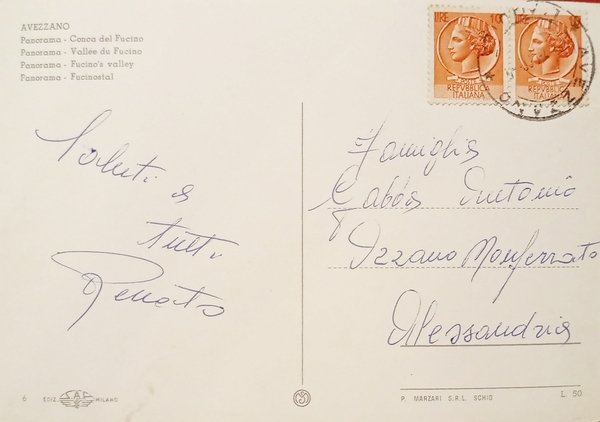 AVEZZANO
Panorama - Conca del Fucino
Panorama - Vallee du Fucino
Panorama - Fucino's valley
Panorama - Fucinostal
Saluti a
tutti
Renato
LIRE 10
POSTE
REPVBBLICA
ITALIANA
POSTE
REPVBBLICA
ITALIANA
AVEZZANO
Famiglia
Antonio
Ozzano Monferrato
Alessandria
6 EDIZ. S.A.F. MILANO
P. MARZARI S.R.L. SCHIO
L. 50